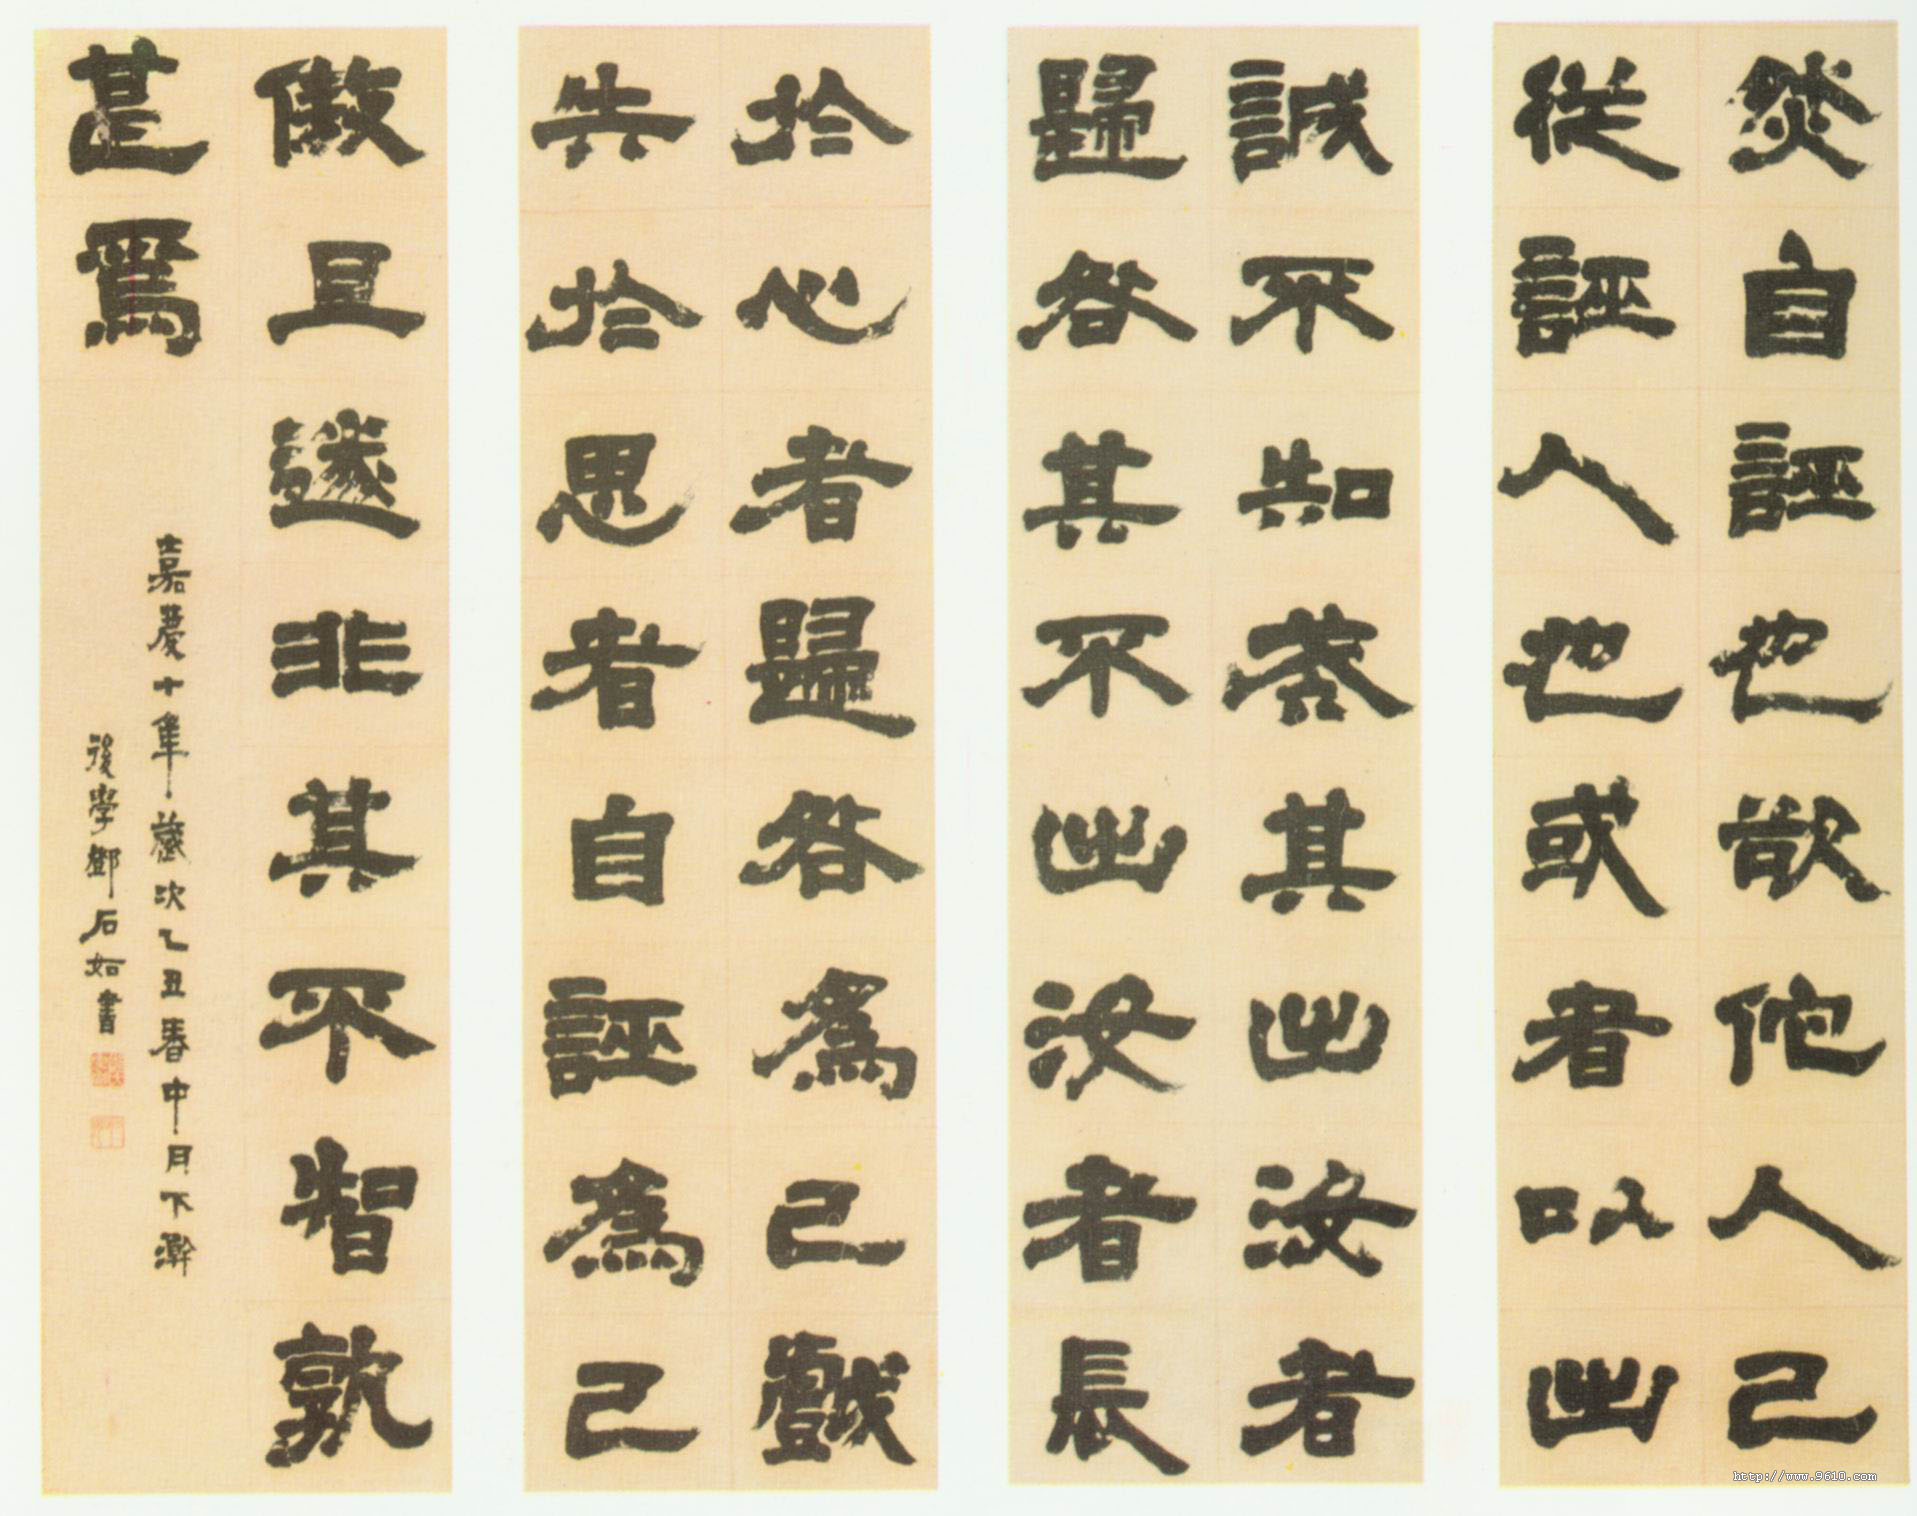 然自誣也欲佗人己
從誣人也或者以出
誠不知戒其出汝者
歸咎其不出汝者長
於心者歸咎為己戲
失於思者自誣為己
傲且遂非其不智孰
甚焉
嘉慶十年歲次乙丑春中月下澣
後學鄧石如書
http://www.9610.com